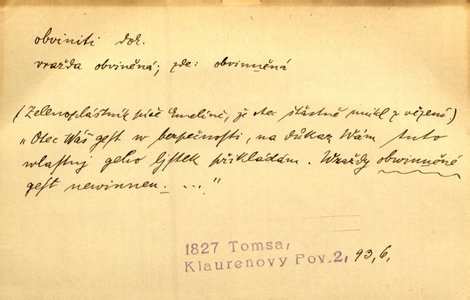 obviniti dok.
vražda obviněná; zde: obvinněná
(Zelenoplástník píše Emelině, že otec šťastně unikl z vězení)
„Otec Wáš gest w bezpečnosti, na důkaz Wám tuto
wlastnj geho ljstek přikládám. Wraždy obwinněné
gest newinnen. ..."
1827 Tomsa,
Klaurenovy Pov. 2, 93, 6,